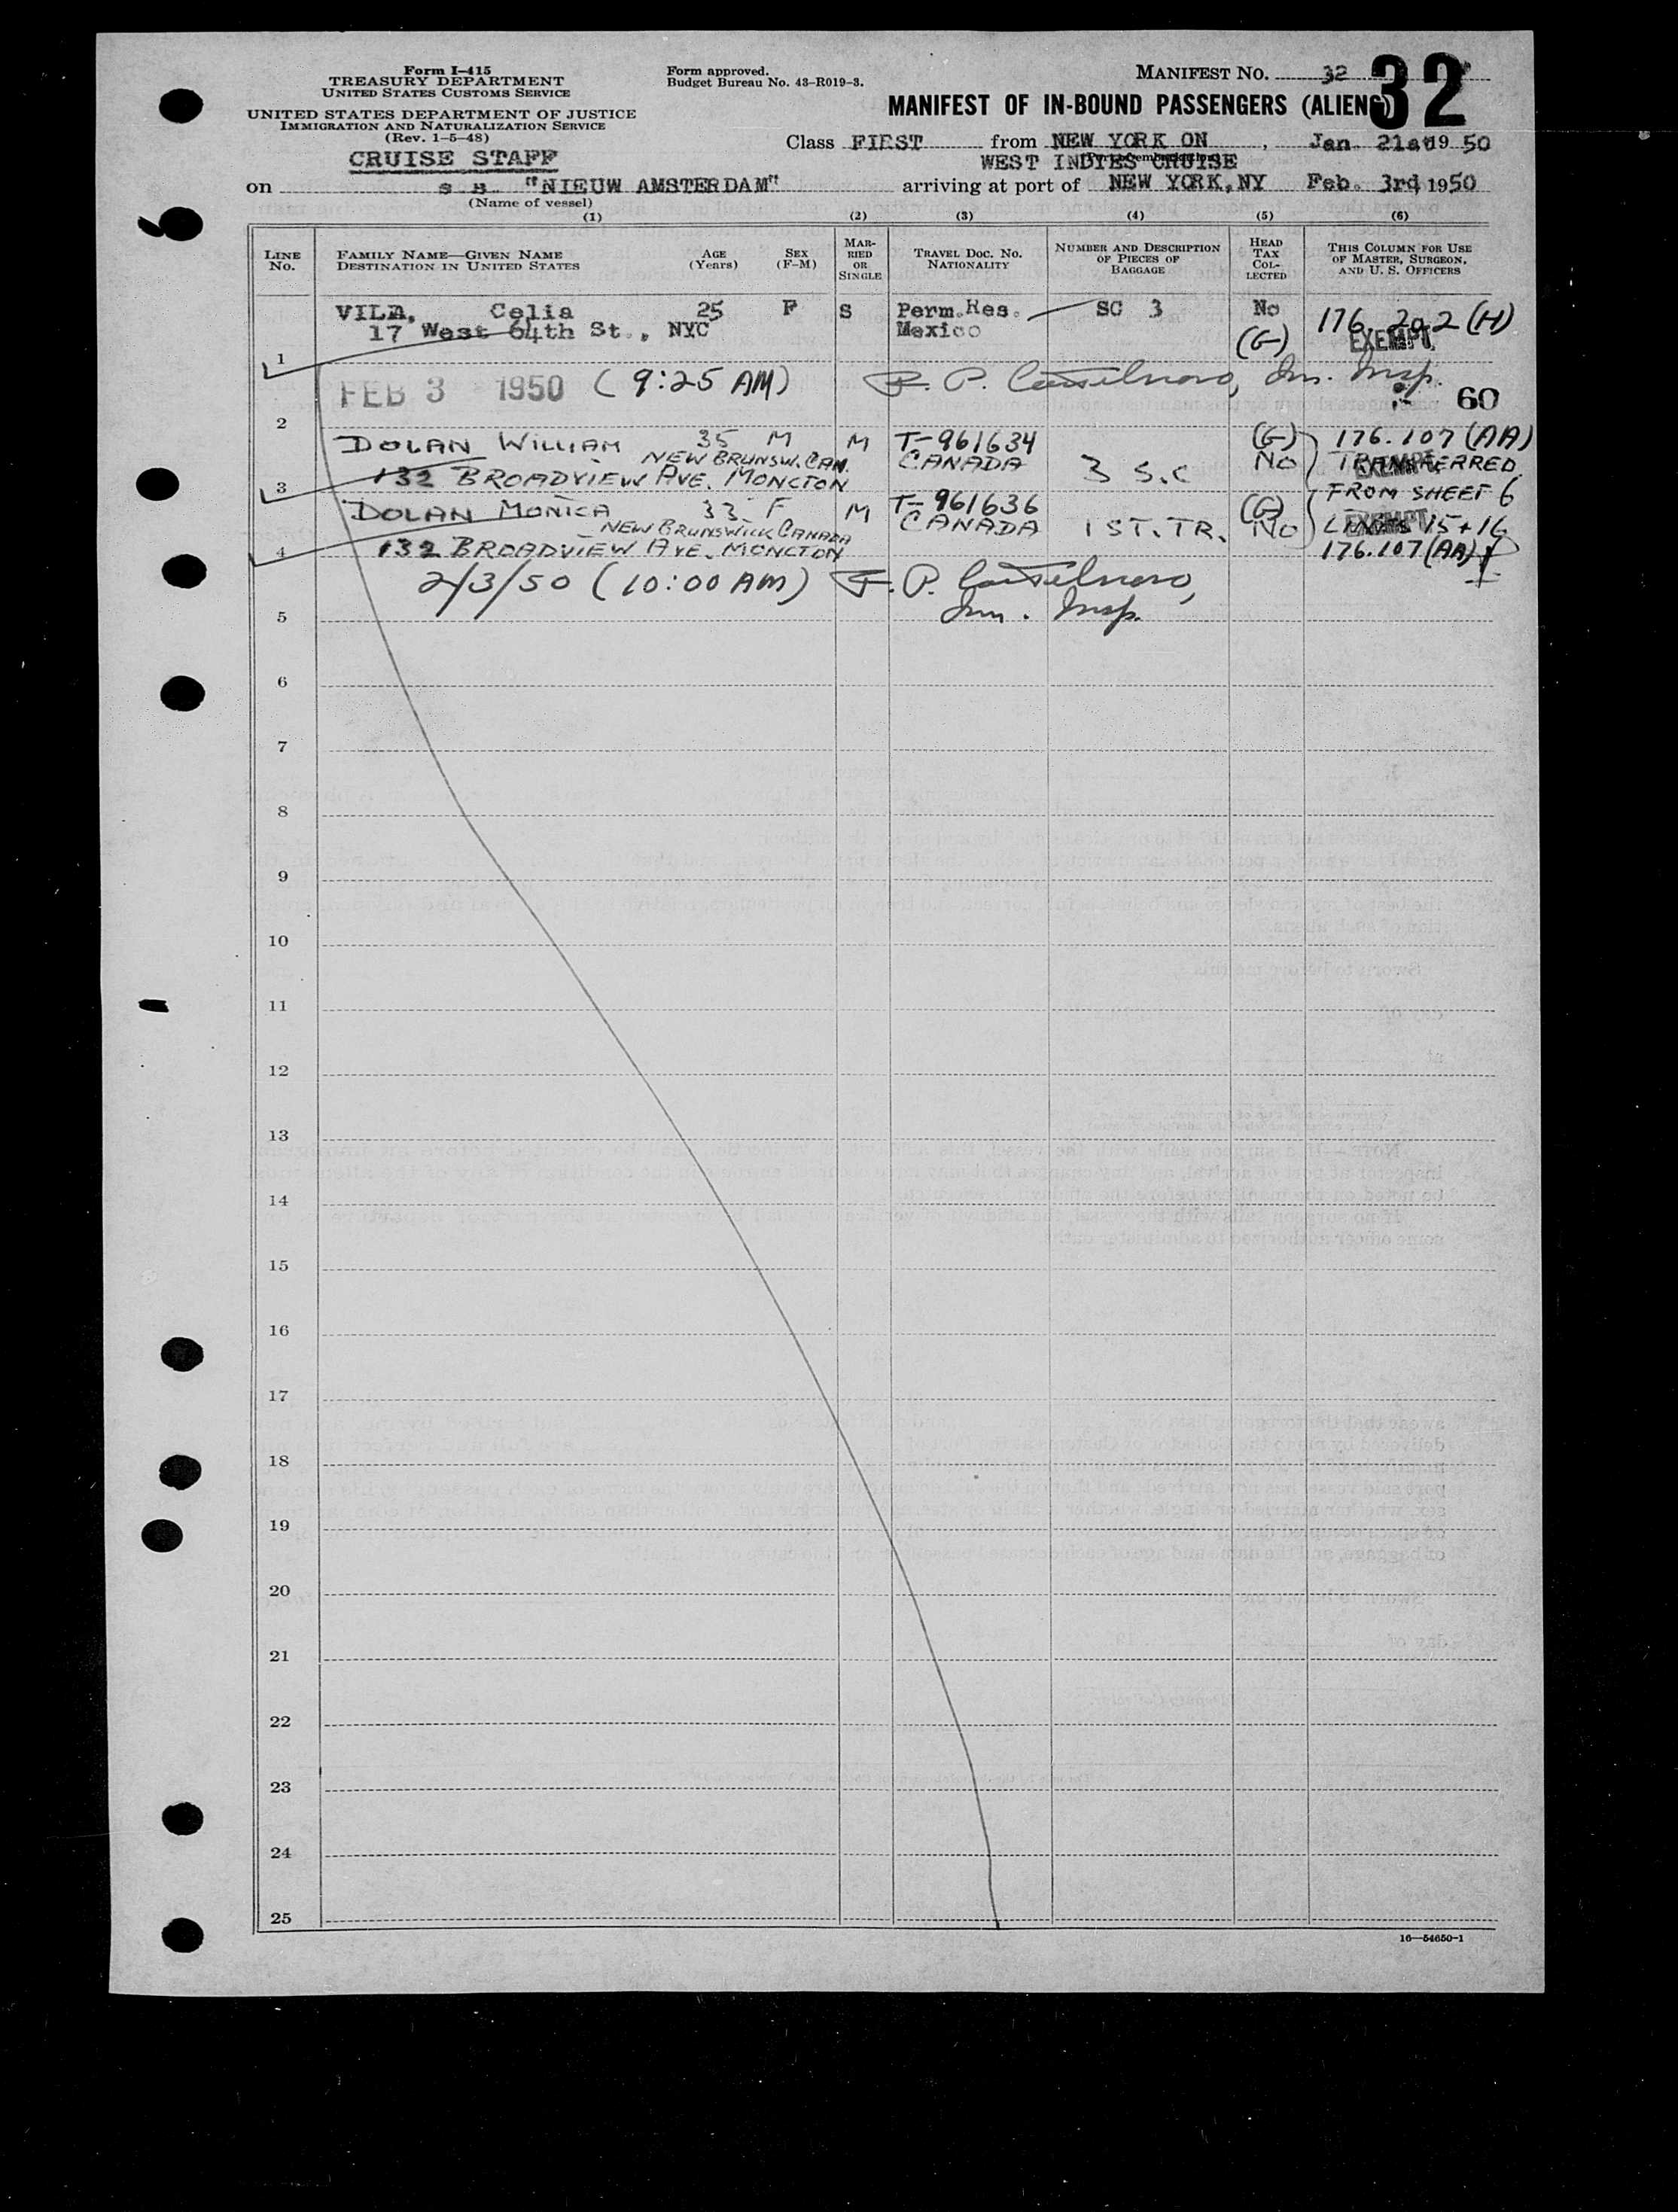 Form I-415
TREASURY DEPARTMENT
UNITED STATES CUSTOMS SERVICE
UNITED STATES DEPARTMENT OF JUSTICE
IMMIGRATION AND NATURALIZATION SERVICE
(Rev. 1-5-48)
CRUISE STAFF
Form approved.
Budget Bureau No. 43-R019-3.
MANIFEST NO. 32 32
MANIFEST OF IN-BOUND PASSENGERS (ALIENS)
Class FIRST from NEW YORK ON , Jan. 21st 1950
WEST INDIES CRUISE
on s s "NIEUW AMSTERDAM" arriving at port of NEW YORK, NY Feb. 3rd, 1950
(Name of vessel)
(1) (2) (3) (4) (5) (6)
LINE NO.
FAMILY NAME—GIVEN NAME
DESTINATION IN UNITED STATES
AGE (Years)
SEX (F-M)
MARRIED OR SINGLE
TRAVEL DOC. NO. NATIONALITY
NUMBER AND DESCRIPTION OF PIECES OF BAGGAGE
HEAD TAX COLLECTED
THIS COLUMN FOR USE OF MASTER, SURGEON, AND U. S. OFFICERS
VILA, Celia 25 F S Perm.Res. SC 3 No 176.202 (H)
17 West 64th St., NYC Mexico (G) EXEMPT
1
FEB 3 1950 (9:25 AM) P. Im. Insp.
60
2
DOLAN WILLIAM 35 M M T-961634 (G) 176.107 (AA)
NEW BRUNSW. CAN. CANADA 3 S.C NO TRANSFERRED
EXEMPT
3 132 BROADVIEW AVE. MONCTON FROM SHEET 6
DOLAN MONICA 33 F M T-961636 (G) LINES 15+16
NEW BRUNSWICK CANADA CANADA 1 ST. TR. NO EXEMPT
4 132 BROADVIEW AVE. MONCTON 176.107 (AA)
2/3/50 (10:00 AM) P.
Im. Insp.
5
6
7
8
9
10
11
12
13
14
15
16
17
18
19
20
21
22
23
24
25
16—54650-1